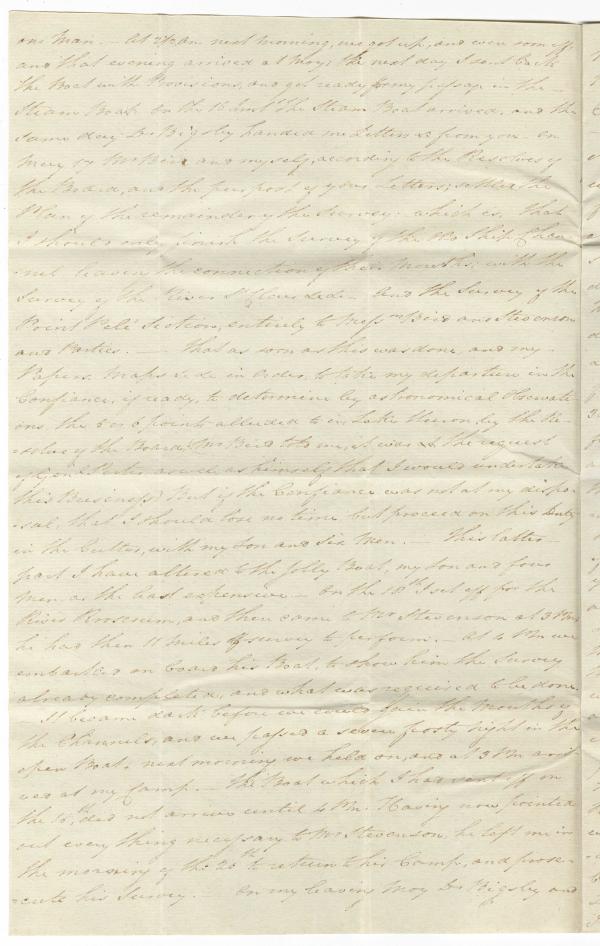 one Man. — At 2 Am next morning, we got up, and were soon off
and that evening arrived at Moy; the next day I sent back
the Boat with Provisions, and got ready for my passage in the
Steam Boat. On the 16 Inst the Steam Boat arrived, and the
same day Dr Bigsby handed me Letters &c from you. On
May 17 Mr Bird and myself, according to the Resolves of
the Board, and the purport of your Letters, settled the
Plan of the remainder of the Survey: which is, that
I should only finish the Survey of the Ship Chan
nel leaving the connection of their Mouths, with the
Survey of the River St Clair &c &c. And the Survey of the
Point Pelé Section, entirely to Messrs Bird and Stevenson
and Parties. — That as soon as this was done, and my
Papers, Maps &c &c in Order, to take my departure in the
Confiance, if ready, to determine by astronomical Observati
ons, the 5 or 6 points alluded to in Lake Huron, by the Re-
-solve of the Board, (Mr Bird told me, it was at the request
of Genl Porter as well as himself that I would undertake
this Business) But if the Confiance was not at my dispo-
-sal, that I should lose no time but proceed on this Duty
in the Cutter, with my Son and six Men. — This latter
part I have altered to the Jolly Boat, my Son and four
Men, as the least expensive — On the 18th I set off for the
River and then came to Mr Stevenson at 3 Pm
he had then 11 Miles of survey to perform. — At 4 Pm we
embarked on board his Boat, to show him the Survey
already completed, and what was required to be done.
It became dark before we could gain the Mouths of
the Channels, and we passed a severe frosty night in the
open Boat; next morning we held on, and at 3 Pm arri-
ved at my Camp. — The Boat which I had sent off on
the 16th did not arrive until 4 Pm. Having now pointed
out every thing necessary to Mr Stevenson, he left me in
the morning of the 20th to return to his Camp, and prose-
-cute his Survey. — On my leaving Moy Dr Bigsby and